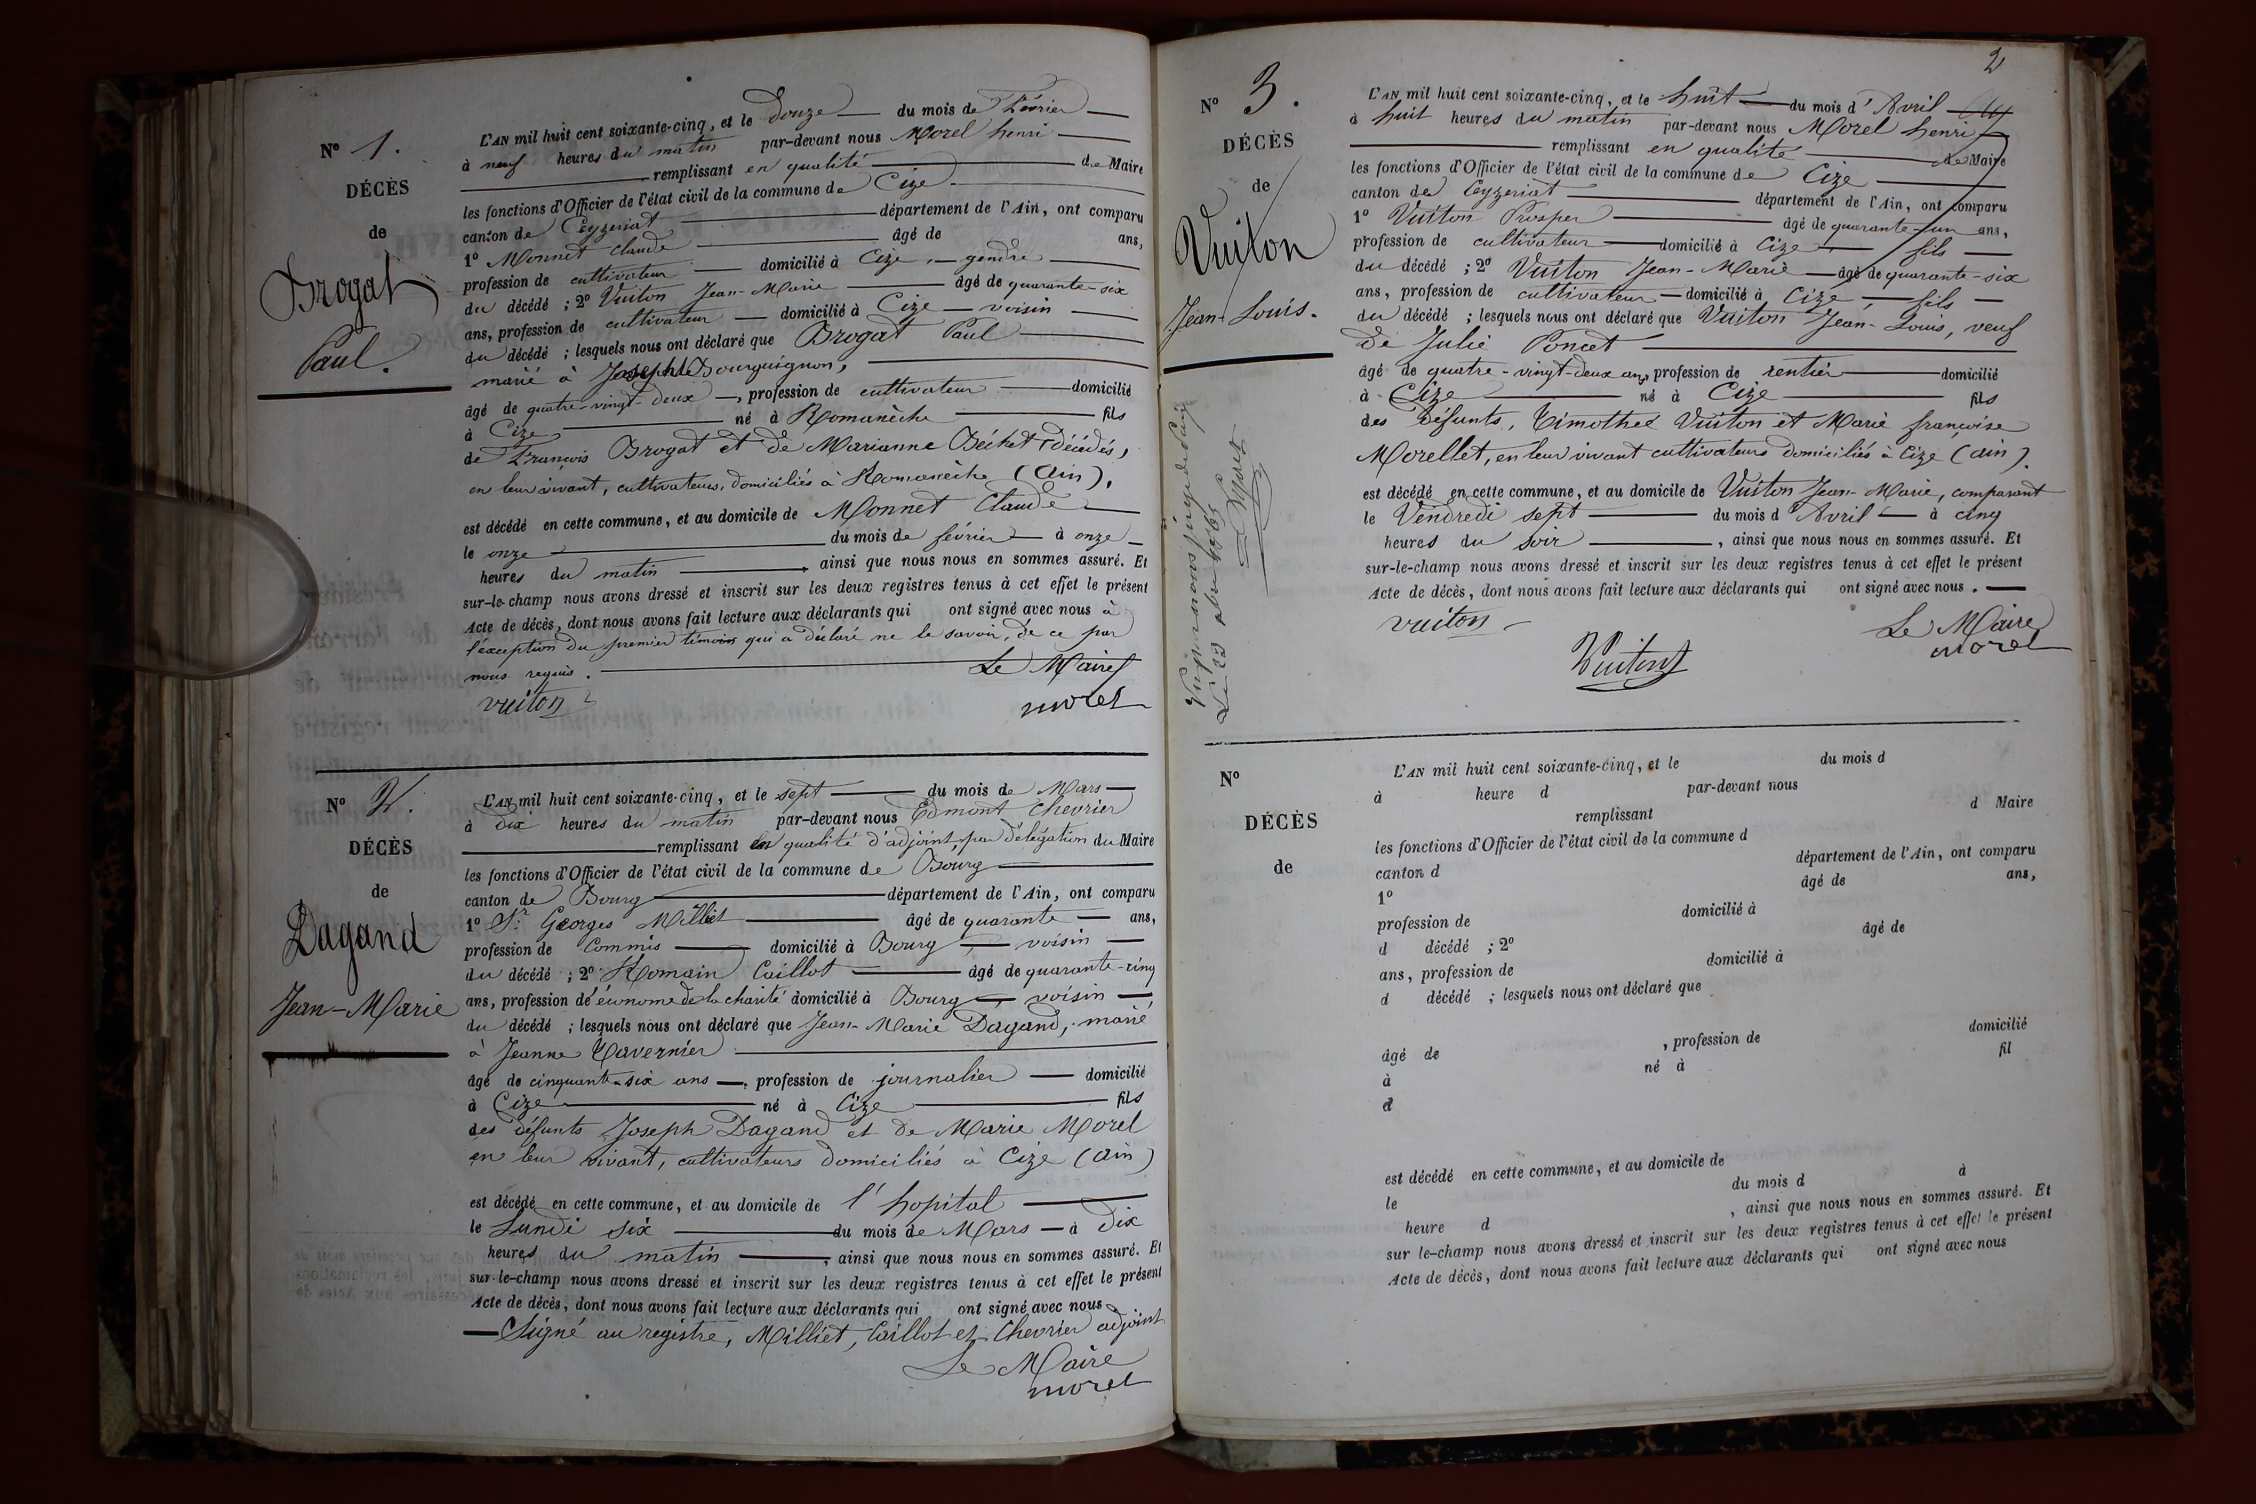 N° 1.
DÉCÈS
de
Brogat
Paul.
L'AN mil huit cent soixante-cinq, et le Douze du mois de Février
à neuf heures du matin par-devant nous Morel henri
remplissant en qualité de Maire
les fonctions d'Officier de l'état civil de la commune de Cize
canton de Ceyzeriat département de l'Ain, ont comparu
1° Monnet Claude âgé de ans,
profession de cultivateur domicilié à Cize, gendre
du décédé ; 2° Vuiton Jean-Marie âgé de quarante-six
ans, profession de cultivateur domicilié à Cize voisin
du décédé ; lesquels nous ont déclaré que Brogat Paul
marié à Bourguignon,
âgé de quatre-vingt-deux, profession de cultivateur domicilié
à Cize né à Romanèche fils
de François Brogat et de Marianne Béchet décédés,
en leur vivant, cultivateurs, domiciliés à Romanèche (Ain).
est décédé en cette commune, et au domicile de Monnet Claude
le onze du mois de février à onze
heures du matin, ainsi que nous nous en sommes assuré. Et
sur-le-champ nous avons dressé et inscrit sur les deux registres tenus à cet effet le présent
Acte de décès, dont nous avons fait lecture aux déclarants qui ont signé avec nous à
l'exception du premier témoins qui a déclaré ne le savoir, de ce par
nous requis.
Le Maire
vuiton
morel
N° 2.
DÉCÈS
de
Dagand
Jean-Marie
L'AN mil huit cent soixante-cinq, et le sept du mois de Mars
à Dix heures du matin par-devant nous Edmont Chevrier
remplissant en qualité d'adjoint, par délégation du Maire
les fonctions d'Officier de l'état civil de la commune de Bourg
canton de Bourg département de l'Ain, ont comparu
1° Sr. Georges Milliet âgé de quarante ans,
profession de Commis domicilié à Bourg voisin
du décédé ; 2° Romain Caillot âgé de quarante-cinq
ans, profession d'économe de la charité domicilié à Bourg voisin
du décédé ; lesquels nous ont déclaré que Jean-Marie Dagand, marié
à Jeanne Tavernier
âgé de cinquante-six ans, profession de journalier domicilié
à Cize né à Cize fils
des défunts Joseph Dagand et de Marie Morel
en leur vivant, cultivateurs domiciliés à Cize (Ain)
est décédé en cette commune, et au domicile de l'hopital
le Lundi six du mois de Mars à Dix
heures du matin, ainsi que nous nous en sommes assuré. Et
sur-le-champ nous avons dressé et inscrit sur les deux registres tenus à cet effet le présent
Acte de décès, dont nous avons fait lecture aux déclarants qui ont signé avec nous
Signé au registre, Milliet, Caillot et Chevrier adjoint
Le Maire
morel
2
N° 3.
DÉCÈS
de
Vuiton
Jean-Louis.
L'AN mil huit cent soixante-cinq, et le huit du mois d'Avril
à huit heures du matin par-devant nous Morel henri
remplissant en qualité de Maire
les fonctions d'Officier de l'état civil de la commune de Cize
canton de Ceyzeriat département de l'Ain, ont comparu
1° Vuiton Prosper âgé de quarante-un ans,
profession de cultivateur domicilié à Cize fils
du décédé ; 2° Vuiton Jean-Marie âgé de quarante-six
ans, profession de cultivateur domicilié à Cize, fils
du décédé ; lesquels nous ont déclaré que Vuiton Jean-Louis, veuf
de Julie Poncet
âgé de quatre-vingt-deux ans, profession de rentier domicilié
à Cize né à Cize fils
des défunts, Timothee Vuiton et Marie françoise
Morellet, en leur vivant cultivateurs domiciliés à Cize (Ain).
est décédé en cette commune, et au domicile de Vuiton Jean-Marie, comparant
le Vendredi sept du mois d'Avril à cinq
heures du soir, ainsi que nous nous en sommes assuré. Et
sur-le-champ nous avons dressé et inscrit sur les deux registres tenus à cet effet le présent
Acte de décès, dont nous avons fait lecture aux déclarants qui ont signé avec nous.
vuiton
Vuiton
Le Maire
morel
Vu par nous juge de paix
Le 23 1865
N°
DÉCÈS
de
L'AN mil huit cent soixante-cinq, et le du mois d
à heure d par-devant nous
remplissant d Maire
les fonctions d'Officier de l'état civil de la commune d
canton d département de l'Ain, ont comparu
1° âgé de ans,
profession de domicilié à
d décédé ; 2° âgé de
ans, profession de domicilié à
d décédé ; lesquels nous ont déclaré que
âgé de , profession de domicilié
à né à fil
d
est décédé en cette commune, et au domicile de
le du mois d à
heure d , ainsi que nous nous en sommes assuré. Et
sur le-champ nous avons dressé et inscrit sur les deux registres tenus à cet effet le présent
Acte de décès, dont nous avons fait lecture aux déclarants qui ont signé avec nous